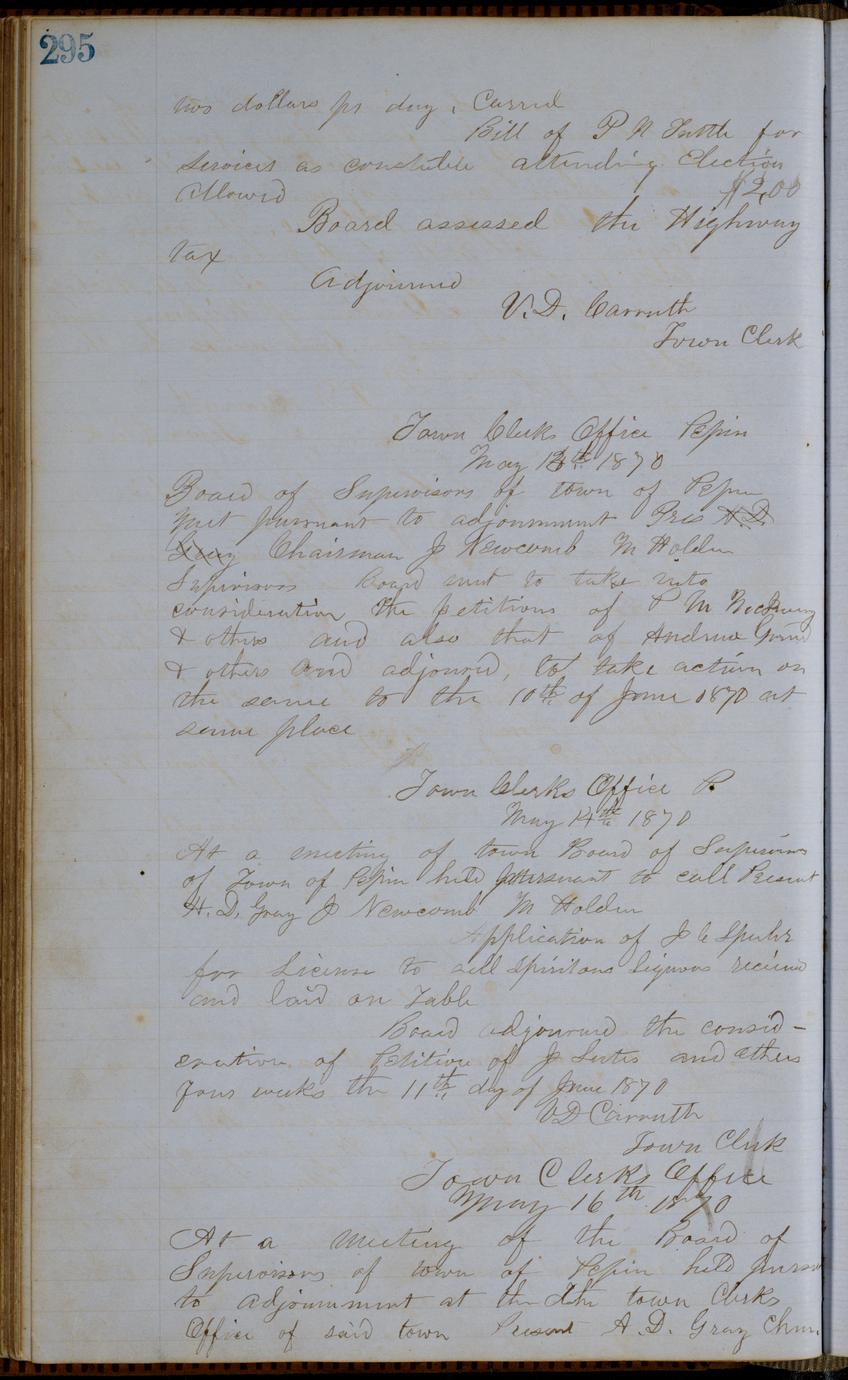 295
two dollars pr day, Carried
Bill of P N Tuttle for
Services as constable attending Election
Allowed $2,00
Board assessed the Highway
tax
Adjourned
V. D. Carruth
Town Clerk
Town Clerks Office Pepin
May 13th 1870
Board of Supervisors of town of Pepin
met pursuant to adjournment Pres H. D.
Gray Chairman J Newcomb M Holden
Supervisors Board met to take into
consideration the petitions of P M
& others and also that of Andrew
& others and adjourd, to take action on
the same to the 10th of June 1870 at
same place
Town Clerks Office P.
May 14th 1870
At a meeting of town Board of Supervisors
of Town of Pepin held pursuant to call Present
H. D. Gray J Newcomb M Holden
Application of J C Spuhr
for License to sell Spiritous Liquors recieved
and laid on Table
Board adjourned the consid-
eration of Petition of J and others
four weeks the 11th day of June 1870
V D Carruth
Town Clerk
Town Clerks Office
May 16th 1870
At a meeting of the Board of
Supervisors of town of Pepin held
to adjournment at the the town Clerks
Office of said town Present A. D. Gray